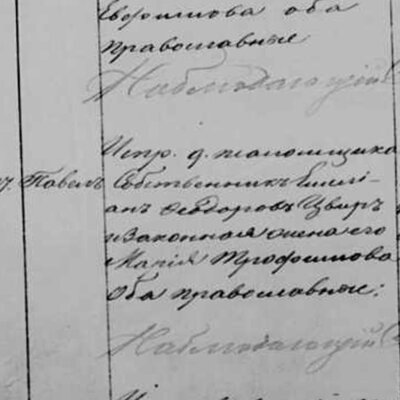 Евфимова оба
православные
Наблюдающій
Испр. д. псаломщика
Павелъ Собственникъ Емелі-
анъ Ѳеодоровъ Цвиръ
и законная жена его
Марія Трофимова
Оба православные:
Наблюдающій